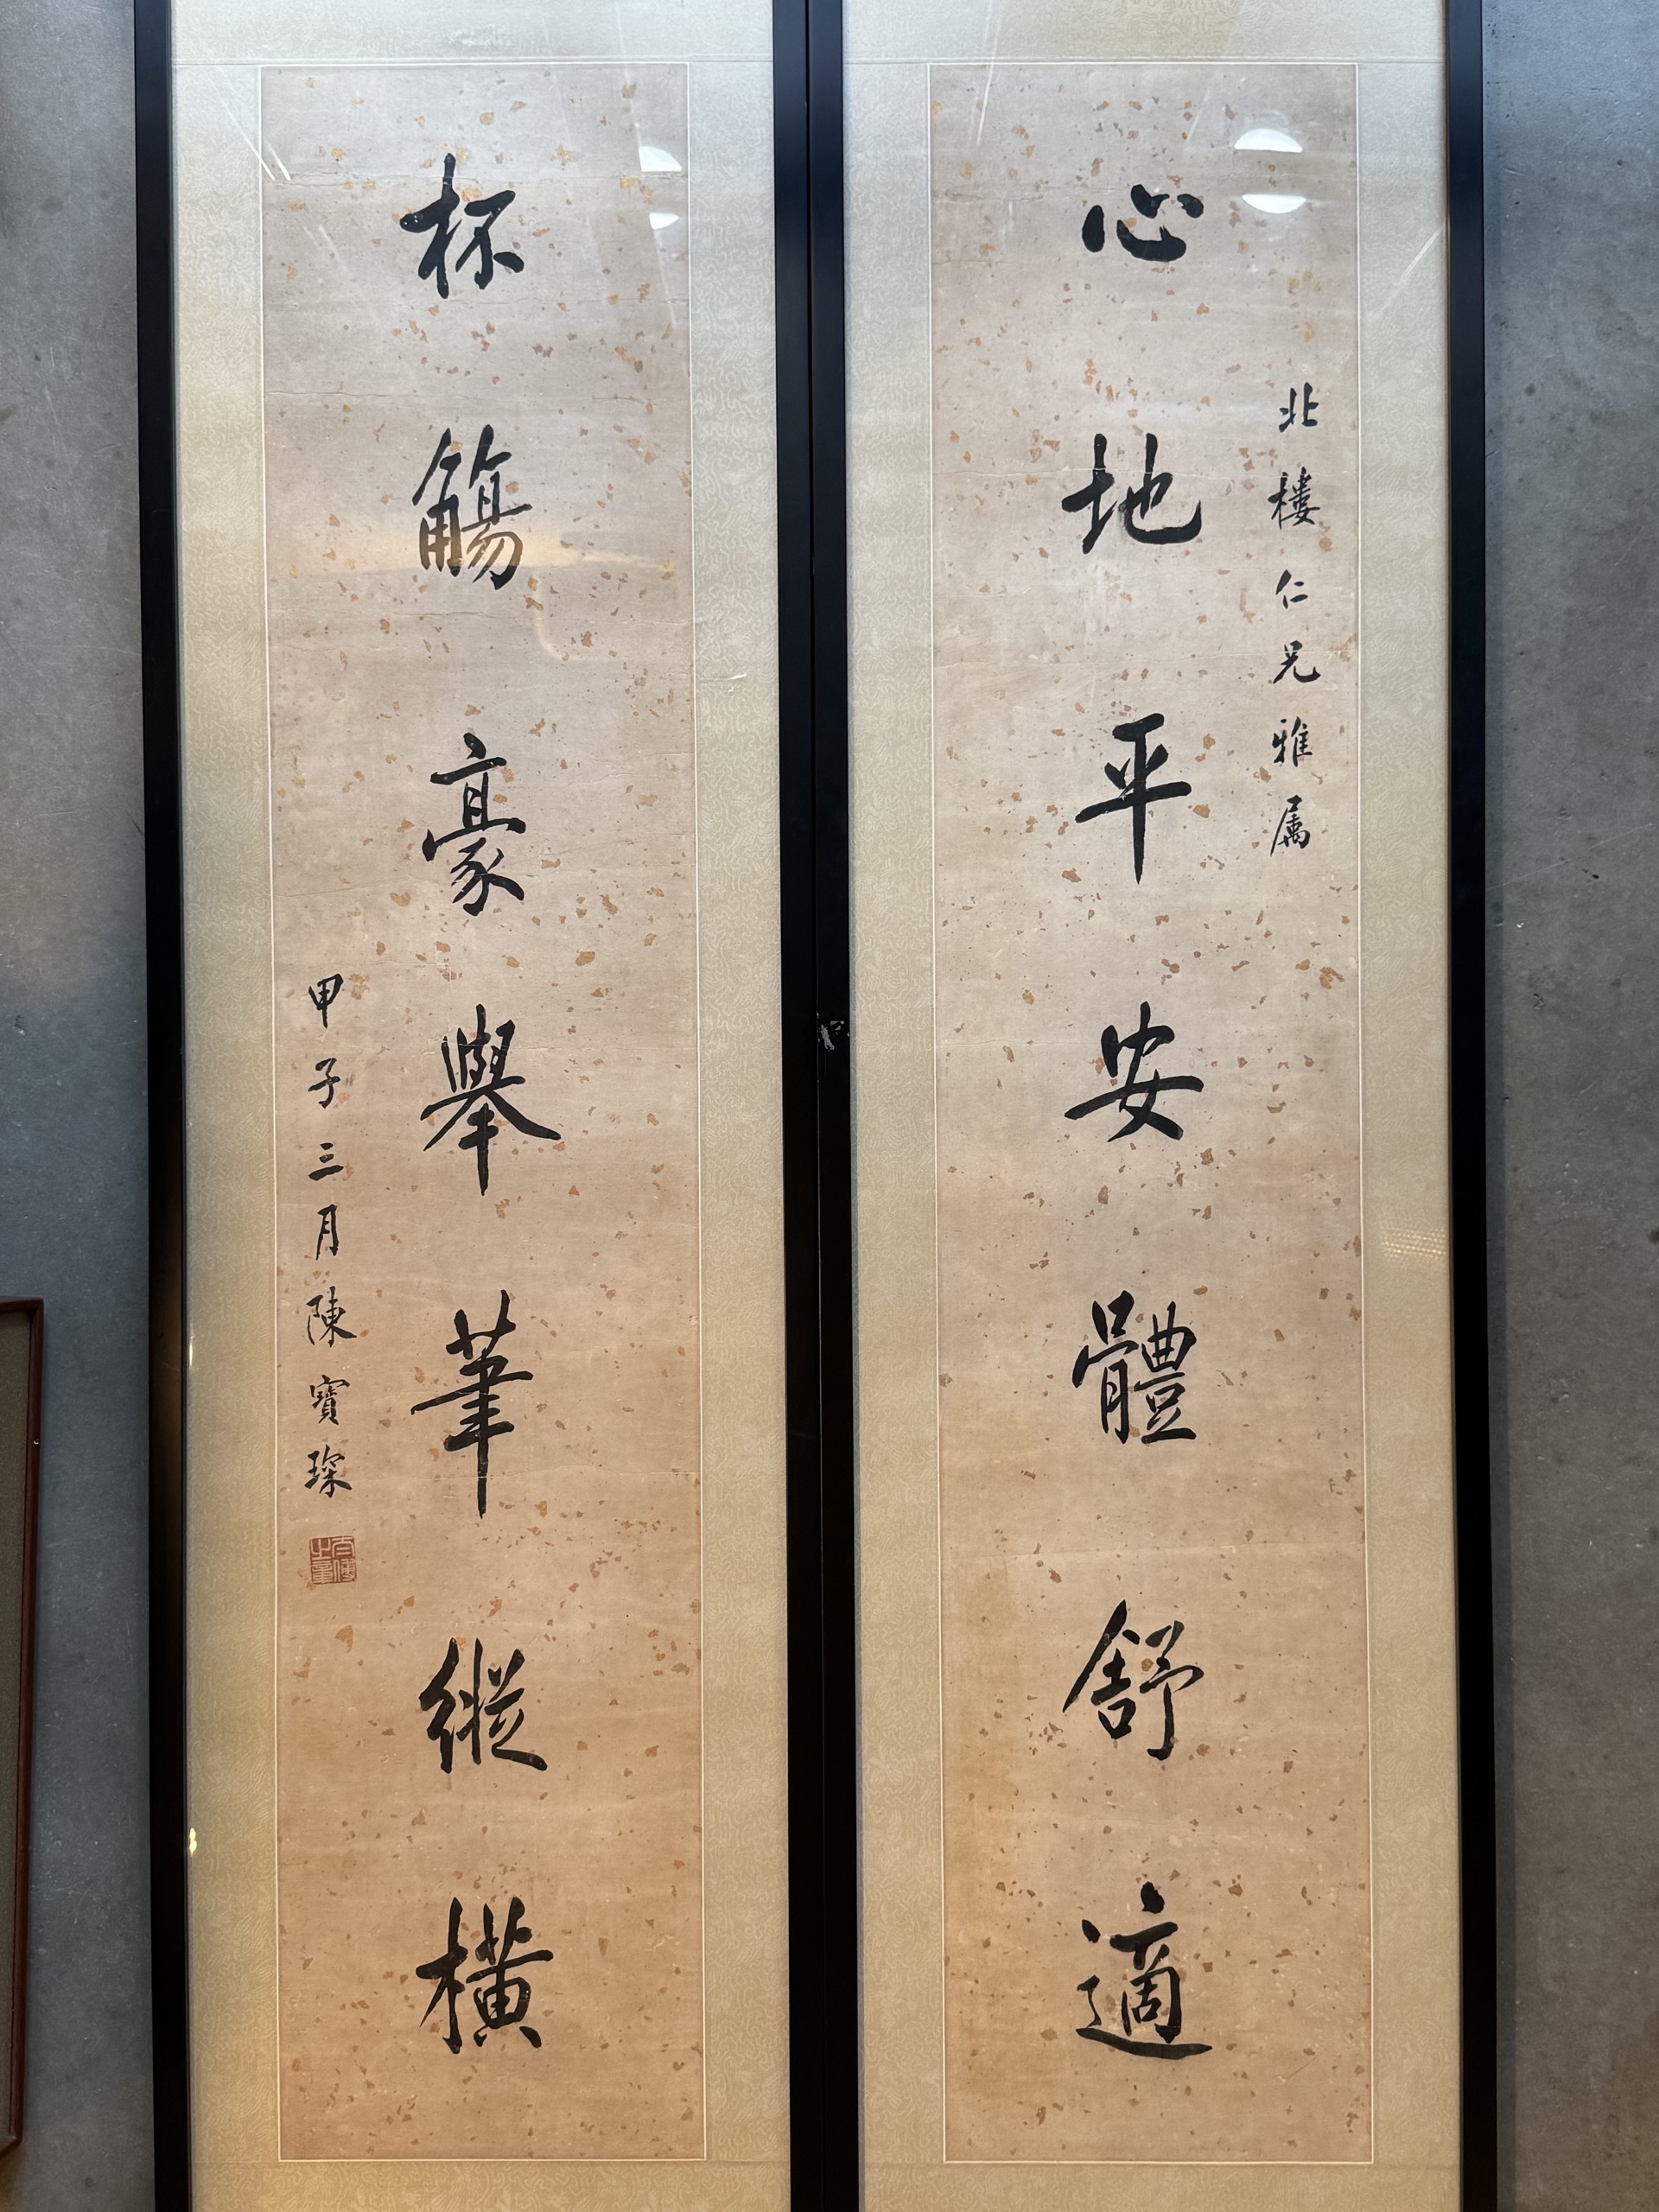 北樓仁兄雅属
心地平安體舒適
杯觴豪舉筆縱橫
甲子三月陳寶琛
太傅之章